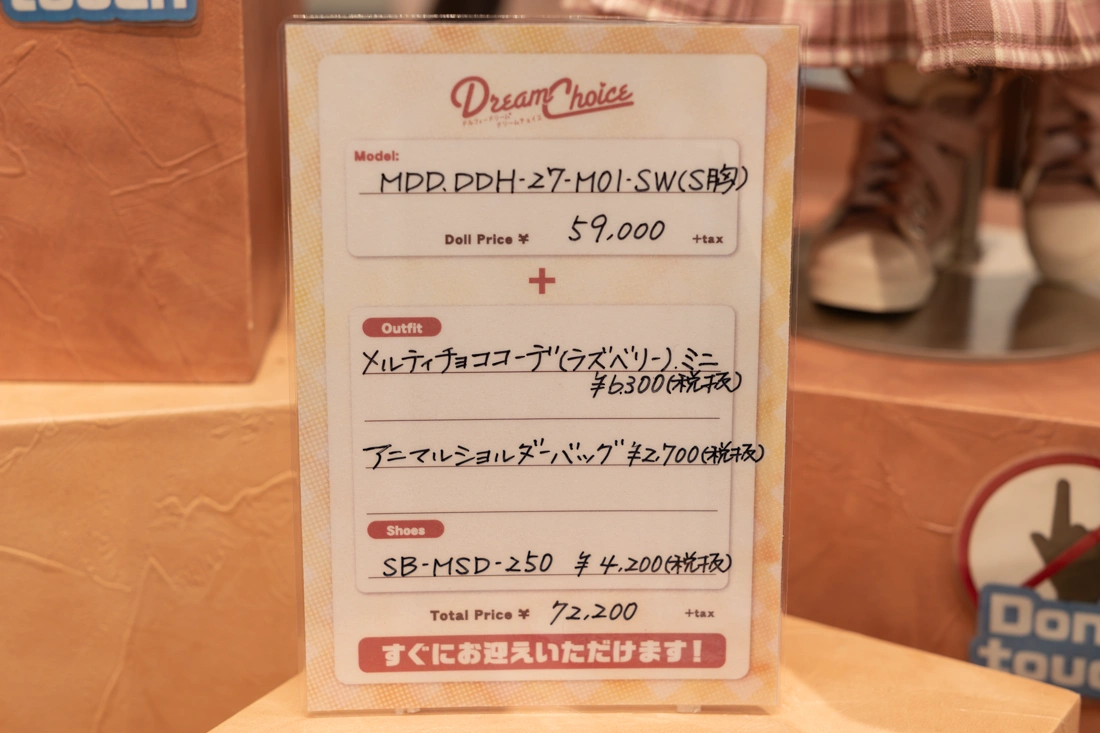 touch
Dream Choice
ドルフィードリーム®
ドリームチョイス
Model:
MDD.DDH-27-M01-SW(S胸)
Doll Price ¥ 59,000 +tax
+
Outfit
メルティチョココーデ(ラズベリー).ミニ
¥6,300(税抜)
アニマルショルダーバッグ ¥2,700(税抜)
Shoes
SB-MSD-250 ¥4,200(税抜)
Total Price ¥ 72,200 +tax
すぐにお迎えいただけます!
Don
touc